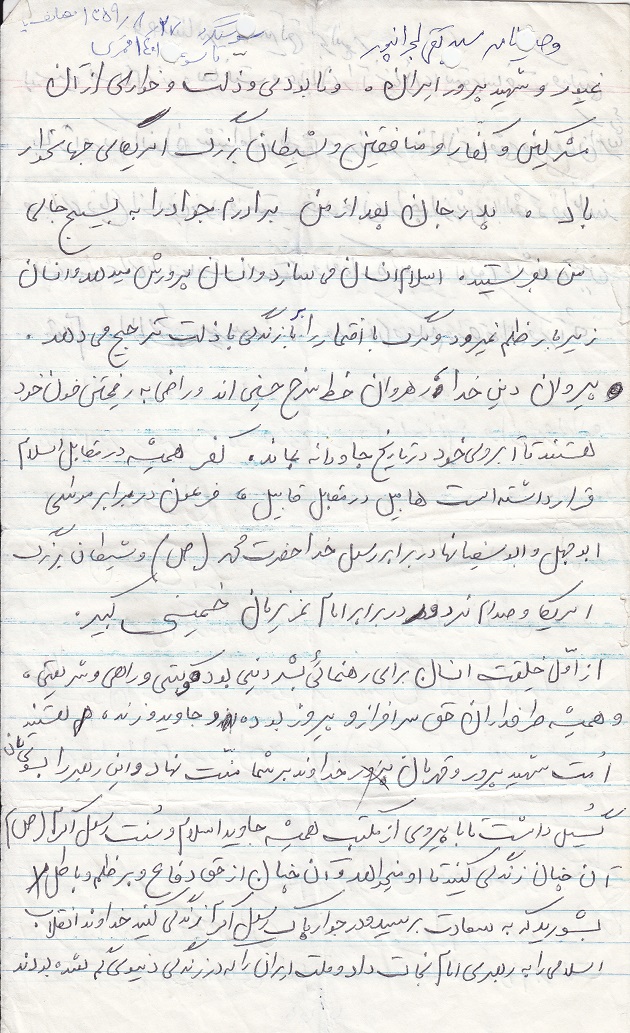 وصیتنامه سید تقی
غیور و شهید پرور ایران. و نابودی و ذلت و خواری از آن
مشرکین و کفار و منافقین و شیطان بزرگ امریکای جهانخوار
باد. پدر جان بعد از من برادرم جواد را به بسیج جای
من بفرستید. اسلام انسان می سازد و انسان پرورش میدهد و انسان
زیر بار ظلم نمیرود و مرگ با افتخار را با زندگی با ذلت ترجیح می دهد.
پیروان دین خدا رهروان خط سرخ حسینی اند و راضی به ریختن خون خود
هستند تا آبروی خود در تاریخ جاودانه بماند. کفر همیشه در مقابل اسلام
قرار داشته است هابیل در مقابل قابیل، فرعون در برابر موسی
ابوجهل و ابوسفیانها در برابر رسول خدا حضرت محمد (ص) و شیطان بزرگ
امریکا و صدام در برابر امام عزیزمان خمینی کبیر.
از اول خلقت انسان برای رهنمائی بشر دینی بود و راهی و شریعتی،
و همیشه طرفداران حق سرافراز و پیروز بوده و جاوید و زنده هستند
امت شهید پرور و قهرمان خداوند بر شما منّت نهاد و این رهبر را بسویتان
گسیل داشت تا با پیروی از مکتب همیشه جاوید اسلام و سنت رسول اکرم (ص)
آن چنان زندگی کنید تا او میخواهد و آن چنان از حق دفاع و بر ظلم و باطل
بشورید که به سعادت برسید و در جوار پاک رسول اکرم زندگی کنید خداوند انقلاب
اسلامی را به رهبری امام نجات داد و ملت ایران را که در زندگی دنیوی گم شده بودند